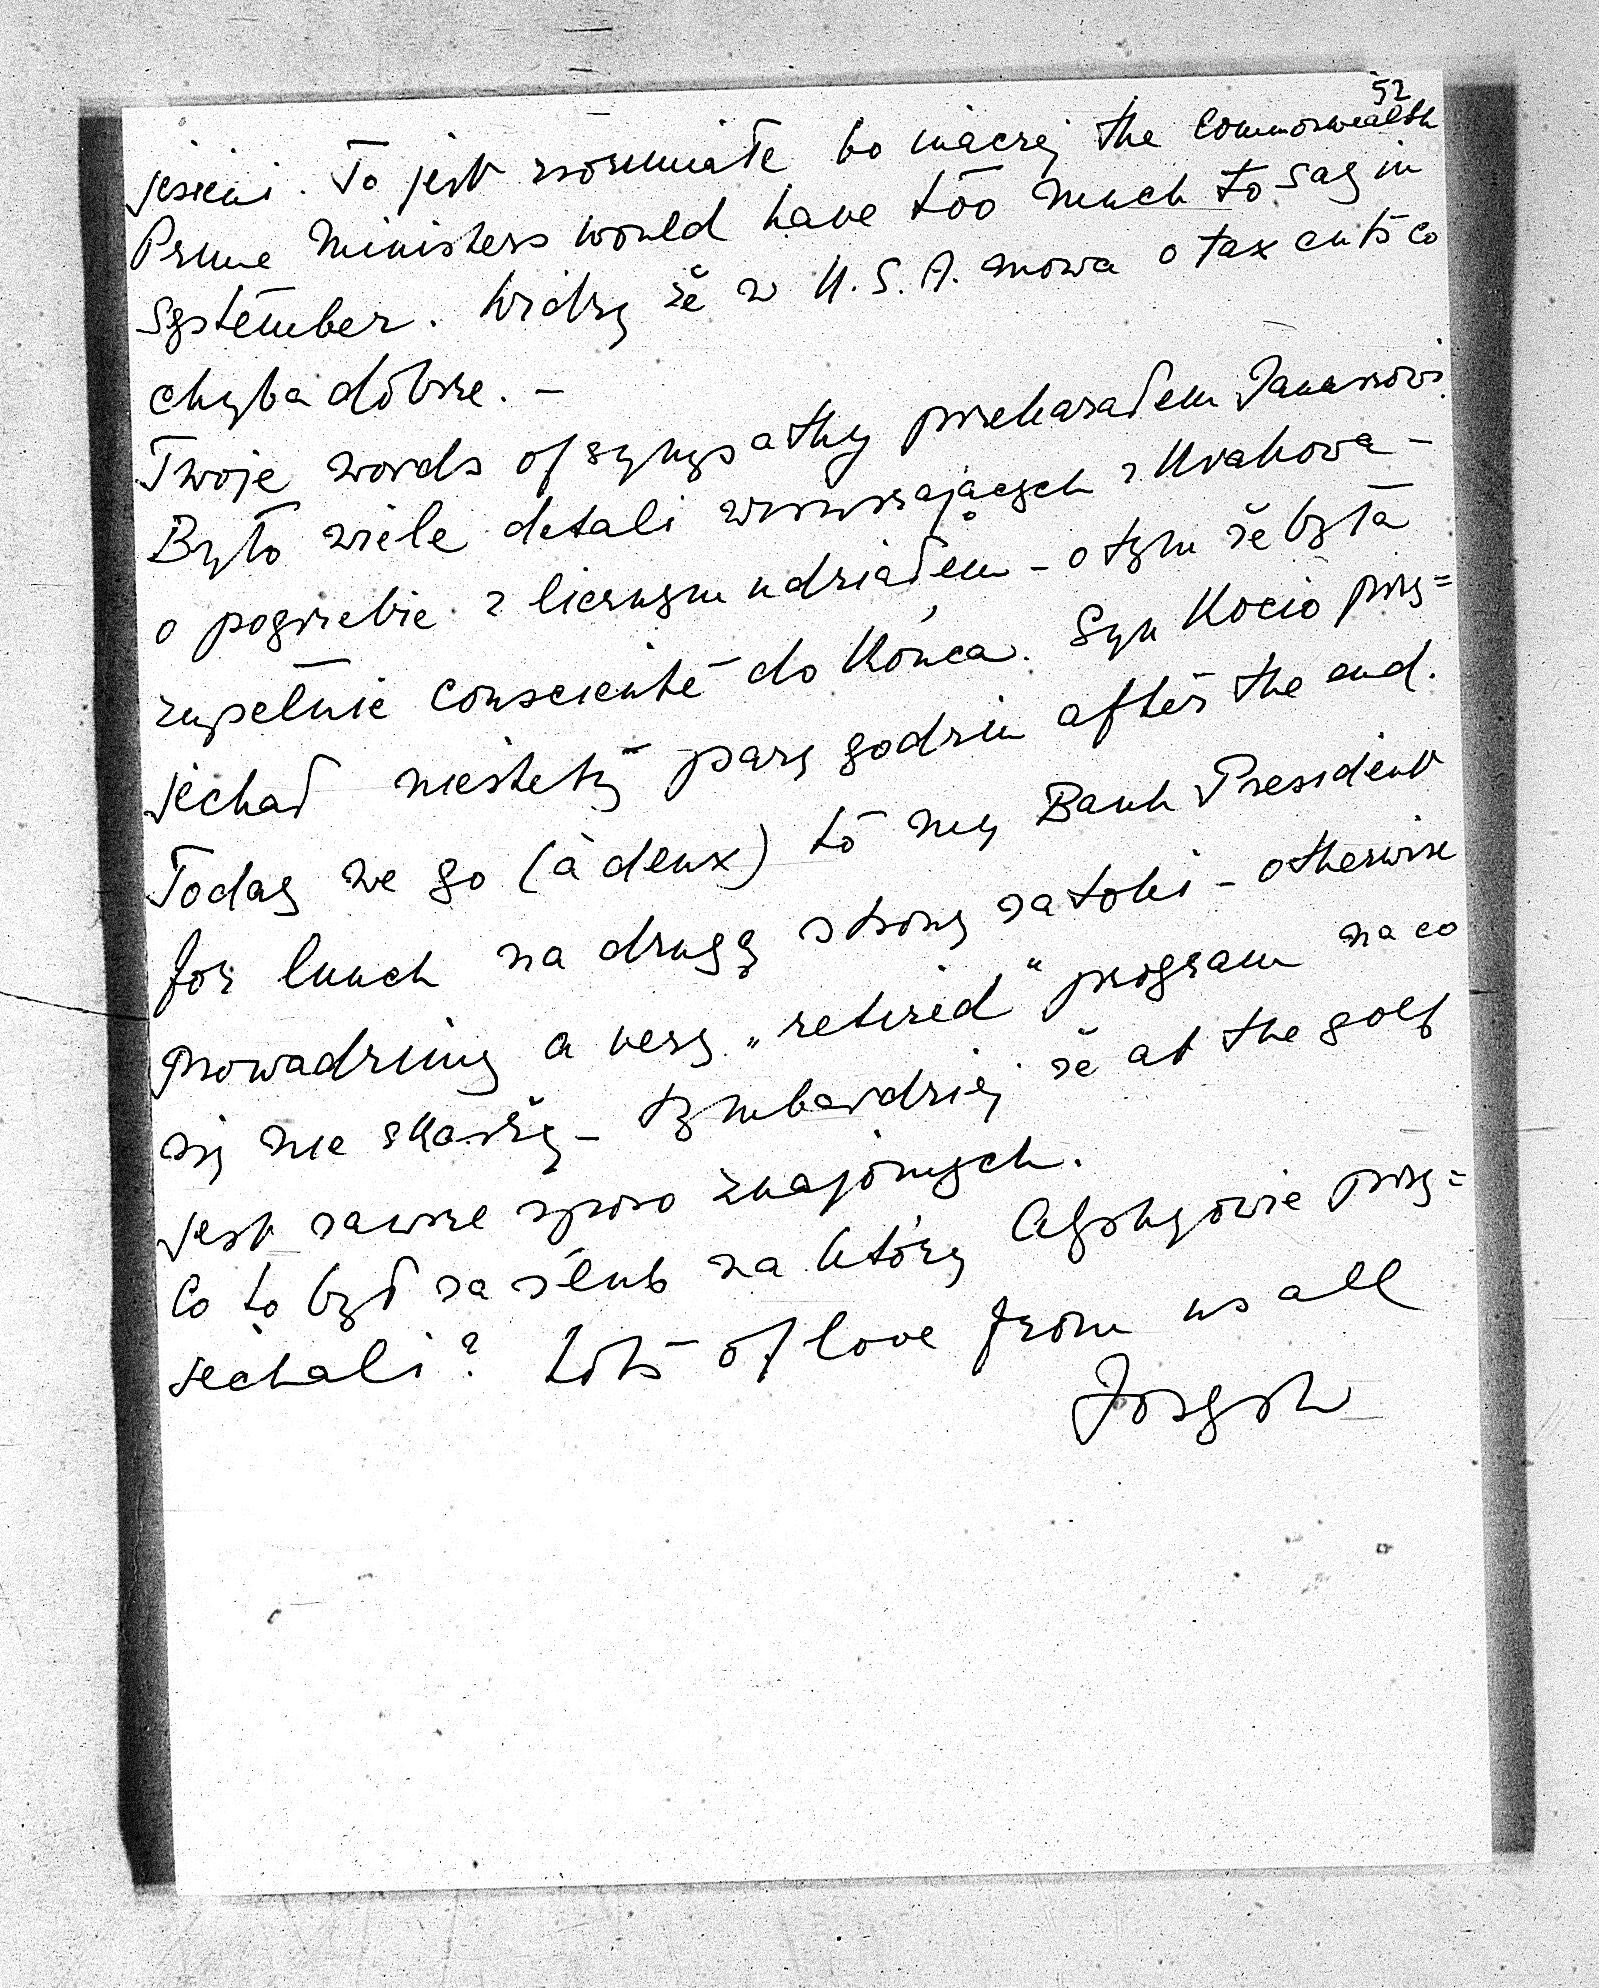 52
jesieni. To jest zrozumiałe bo inaczej the Commonwealth
Prime Ministers would have too much to say in
September. Widzę że w U.S.A. mowa o tax cuts co
chyba dobrze. –
Twoje words of sympathy przekazałem Janaszowi.
Było wiele detali wzruszających z Krakowa –
o pogrzebie z licznym udziałem – o tym że była
zupełnie consciente do Końca. Syn Kocio przy=
jechał niestety parę godzin after the end.
Today we go (à deux) to my Bank President
for lunch na drugą stronę zatoki – otherwise
prowadzimy a very „retired“ program na co
się nie skarżę – tymbardziej że at the golf
jest zawsze sporo znajomych.
Co to był za ślub na który przy=
jechali? Lots of love from us all